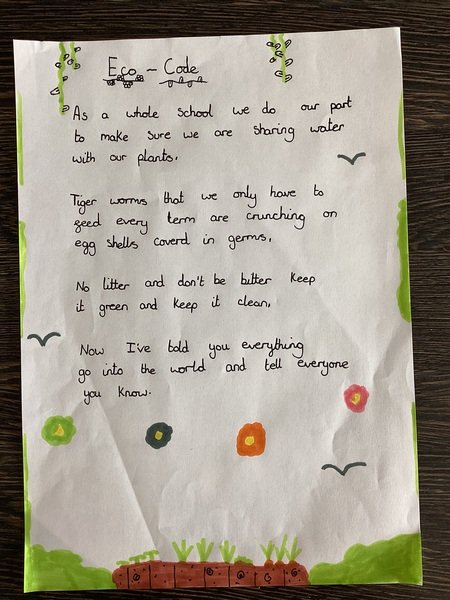 Eco - Code
As a whole school we do our part
to make sure we are sharing water
with our plants.
Tiger worms that we only have to
feed every term are crunching on
egg shells coverd in germs.
No litter and don't be bitter keep
it green and keep it clean.
Now I've told you everything
go into the world and tell everyone
you know.